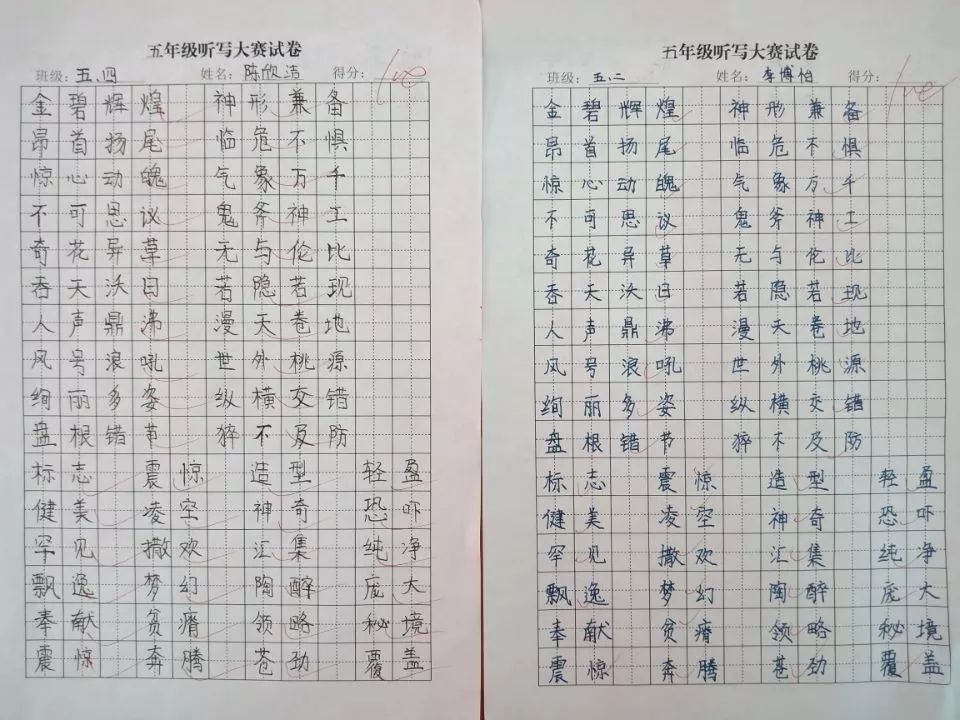 五年级听写大赛试卷
班级：五.四 姓名：陈欣洁 得分：100
金碧辉煌 神形兼备
昂首扬尾 临危不惧
惊心动魄 气象万千
不可思议 鬼斧神工
奇花异草 无与伦比
吞天沃日 若隐若现
人声鼎沸 漫天卷地
风号浪吼 世外桃源
绚丽多姿 纵横交错
盘根错节 猝不及防
标志 震惊 造型 轻盈
健美 凌空 神奇 恐吓
罕见 撒欢 汇集 纯净
飘逸 梦幻 陶醉 庞大
奉献 贫瘠 领略 秘境
震惊 奔腾 苍劲 覆盖
五年级听写大赛试卷
班级：五.二 姓名：李博怡 得分：100
金碧辉煌 神形兼备
昂首扬尾 临危不惧
惊心动魄 气象万千
不可思议 鬼斧神工
奇花异草 无与伦比
吞天沃日 若隐若现
人声鼎沸 漫天卷地
风号浪吼 世外桃源
绚丽多姿 纵横交错
盘根错节 猝不及防
标志 震惊 造型 轻盈
健美 凌空 神奇 恐吓
罕见 撒欢 汇集 纯净
飘逸 梦幻 陶醉 庞大
奉献 贫瘠 领略 秘境
震惊 奔腾 苍劲 覆盖